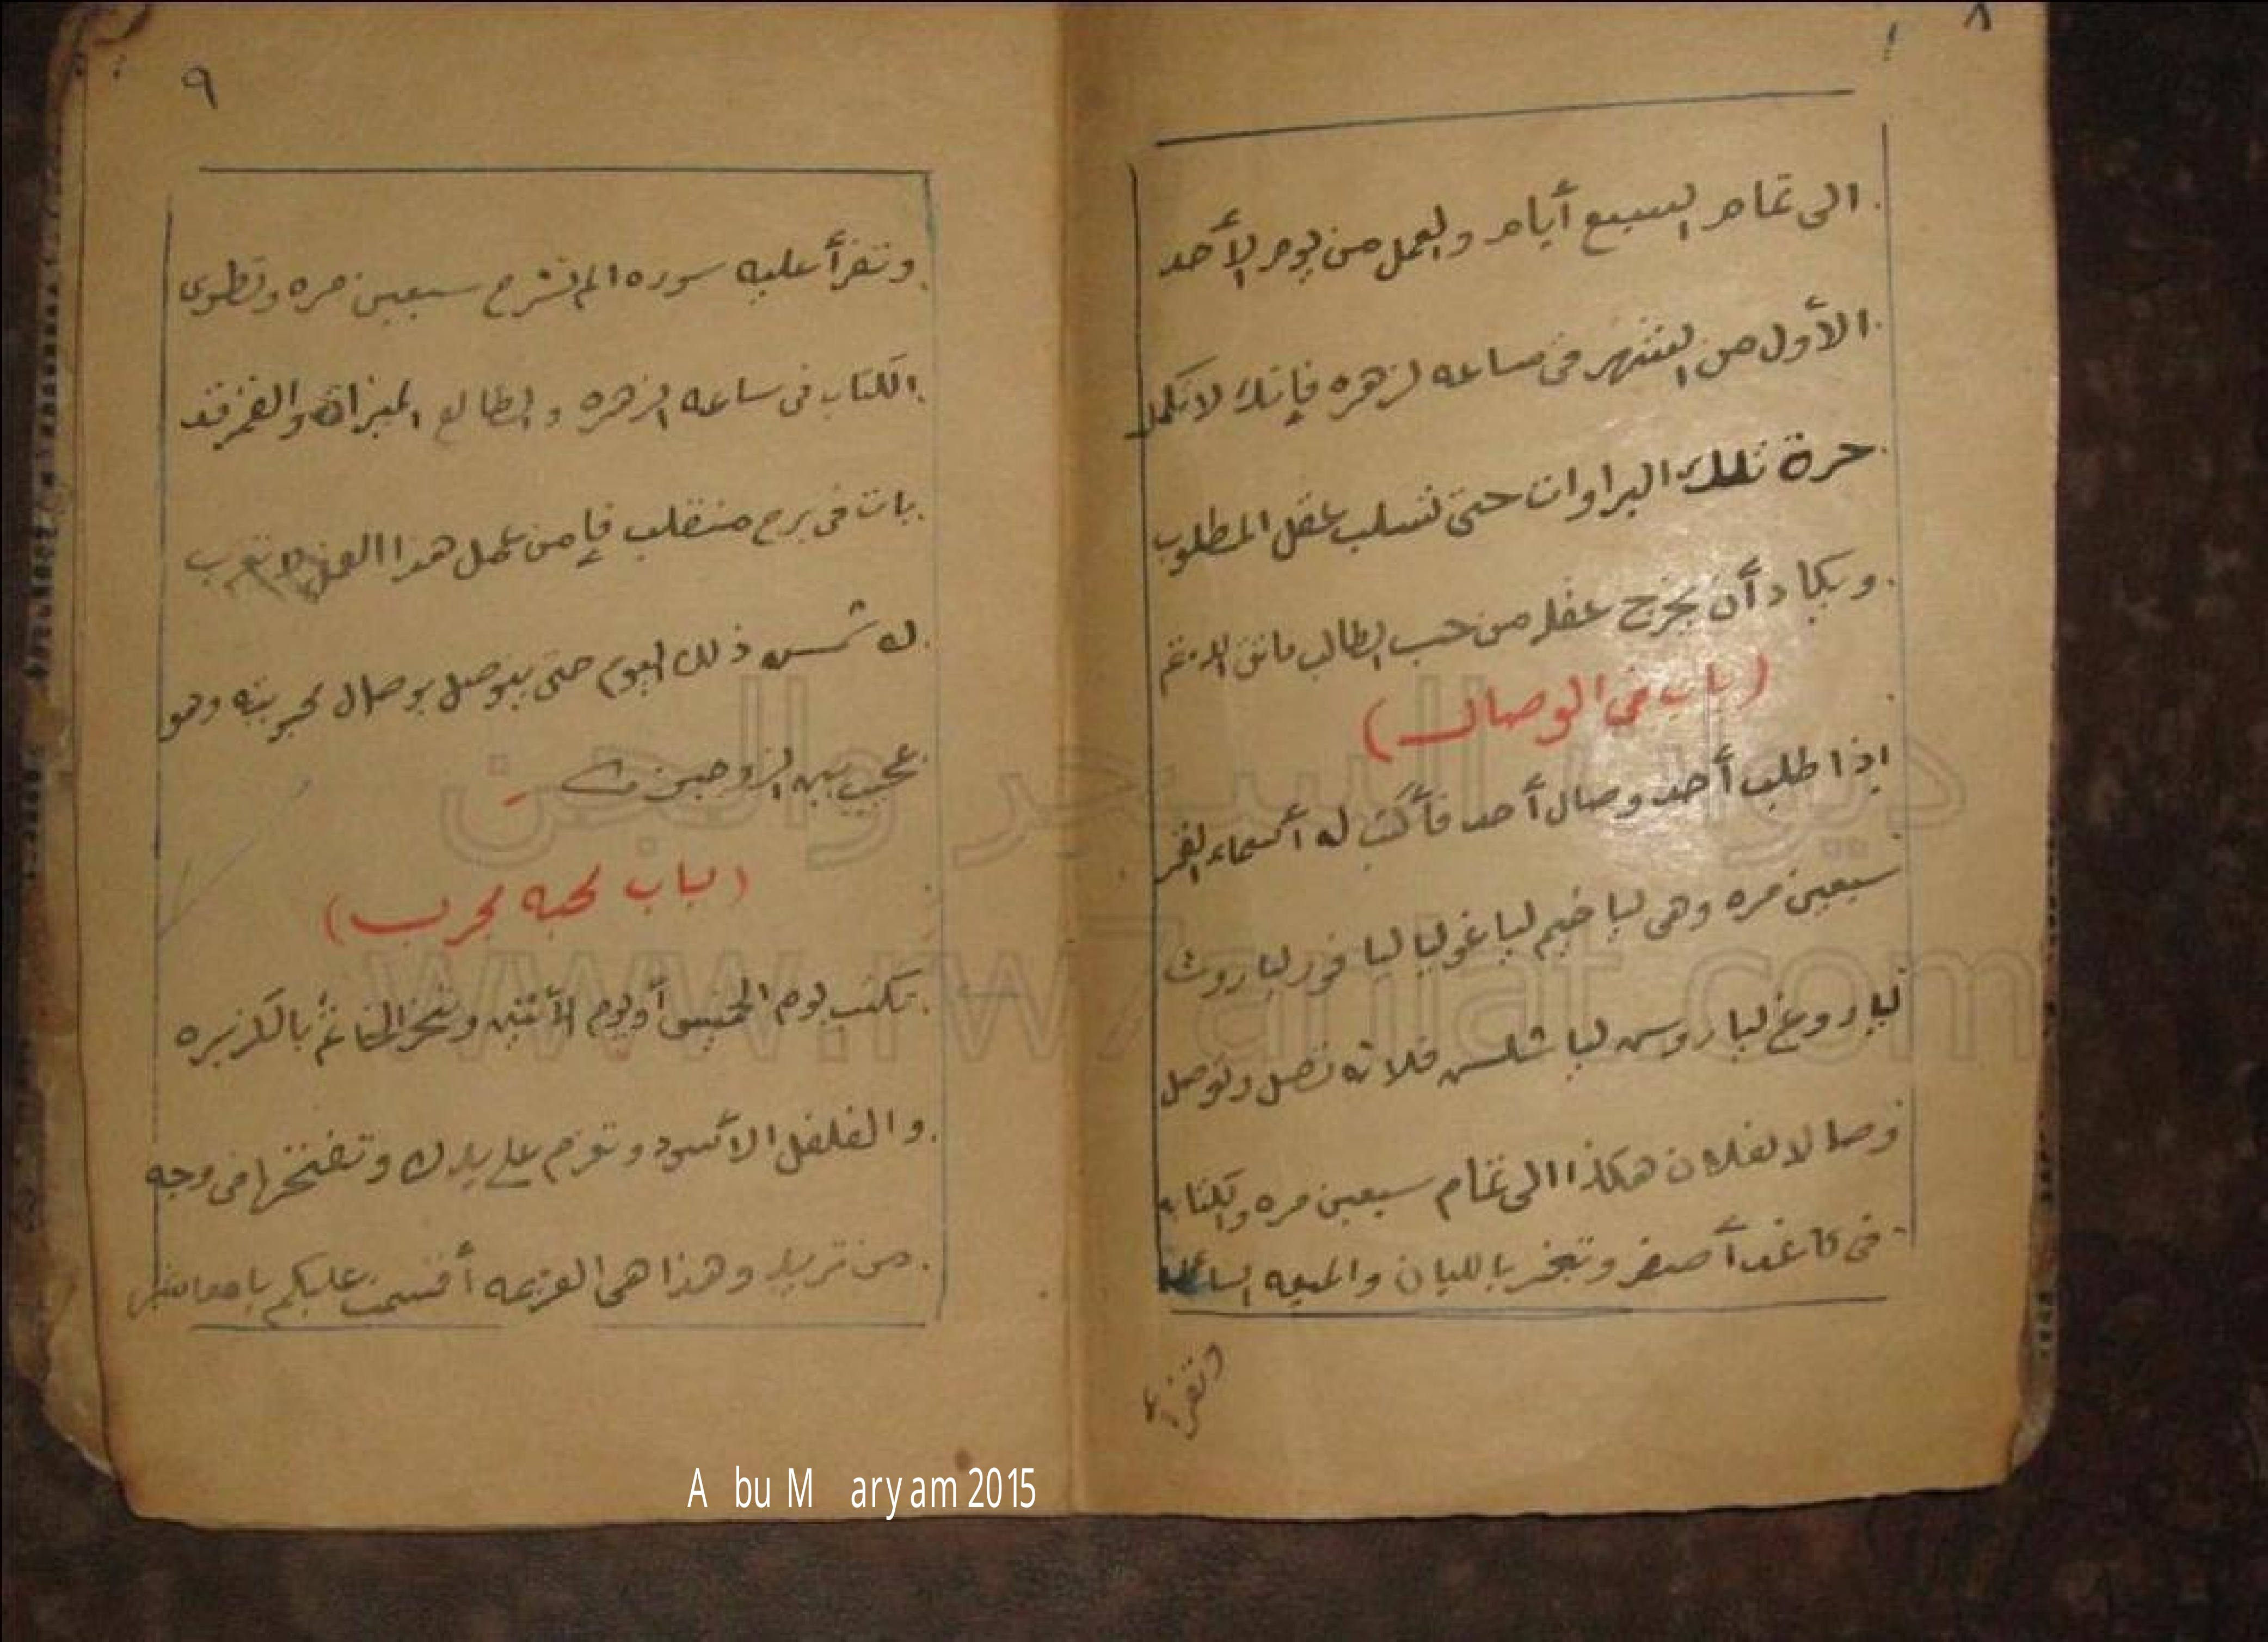 ٨
الى تمام السبع أيام والعمل من يوم الأحد
الأول من الشهر في ساعه لزهره فإنك لا تكمل
حرة تلك البراوات حتى تسلب عقل المطلوب
ويكاد أن يخرج عقله من حب الطالب
(باب في الوصال)
اذا طلب أحد وصال أحد فأكتب له أسماء القمر
سبعين مره وهى ليا خيم ليا غو ليا ليا فور ليا روث
ليا روغ ليا روس ليا شلس فلانه تصل وتوصل
وصالا لفلان هكذا الى تمام سبعين مره والكتابه
في كاغد أصفر وتبخر باللبان والميعه السائله
وتقرأ
٩
وتقرأ عليه سوره الم نشرح سبعين مره وتطوى
الكتاب فى ساعه الزهره والطالع الميزان والقمر قد
بات فى برج منقلب فإ من عمل هذا العمل لا تغرب
له شمس ذلك اليوم حتى يتوصل بوصال وهو
عجيب بين الزوجين
(باب محبه مجرب)
تكتب يوم الخميس أو يوم الأثنين وتبخر الخاتم بالكزبره
والفلفل الأسود وتعزم على يدك وتفتخها في وجه
من تريد وهذا هى العزيمه أقسمت عليكم يا معاشر
ديوان السحر والجن
A bu M aryam 2015